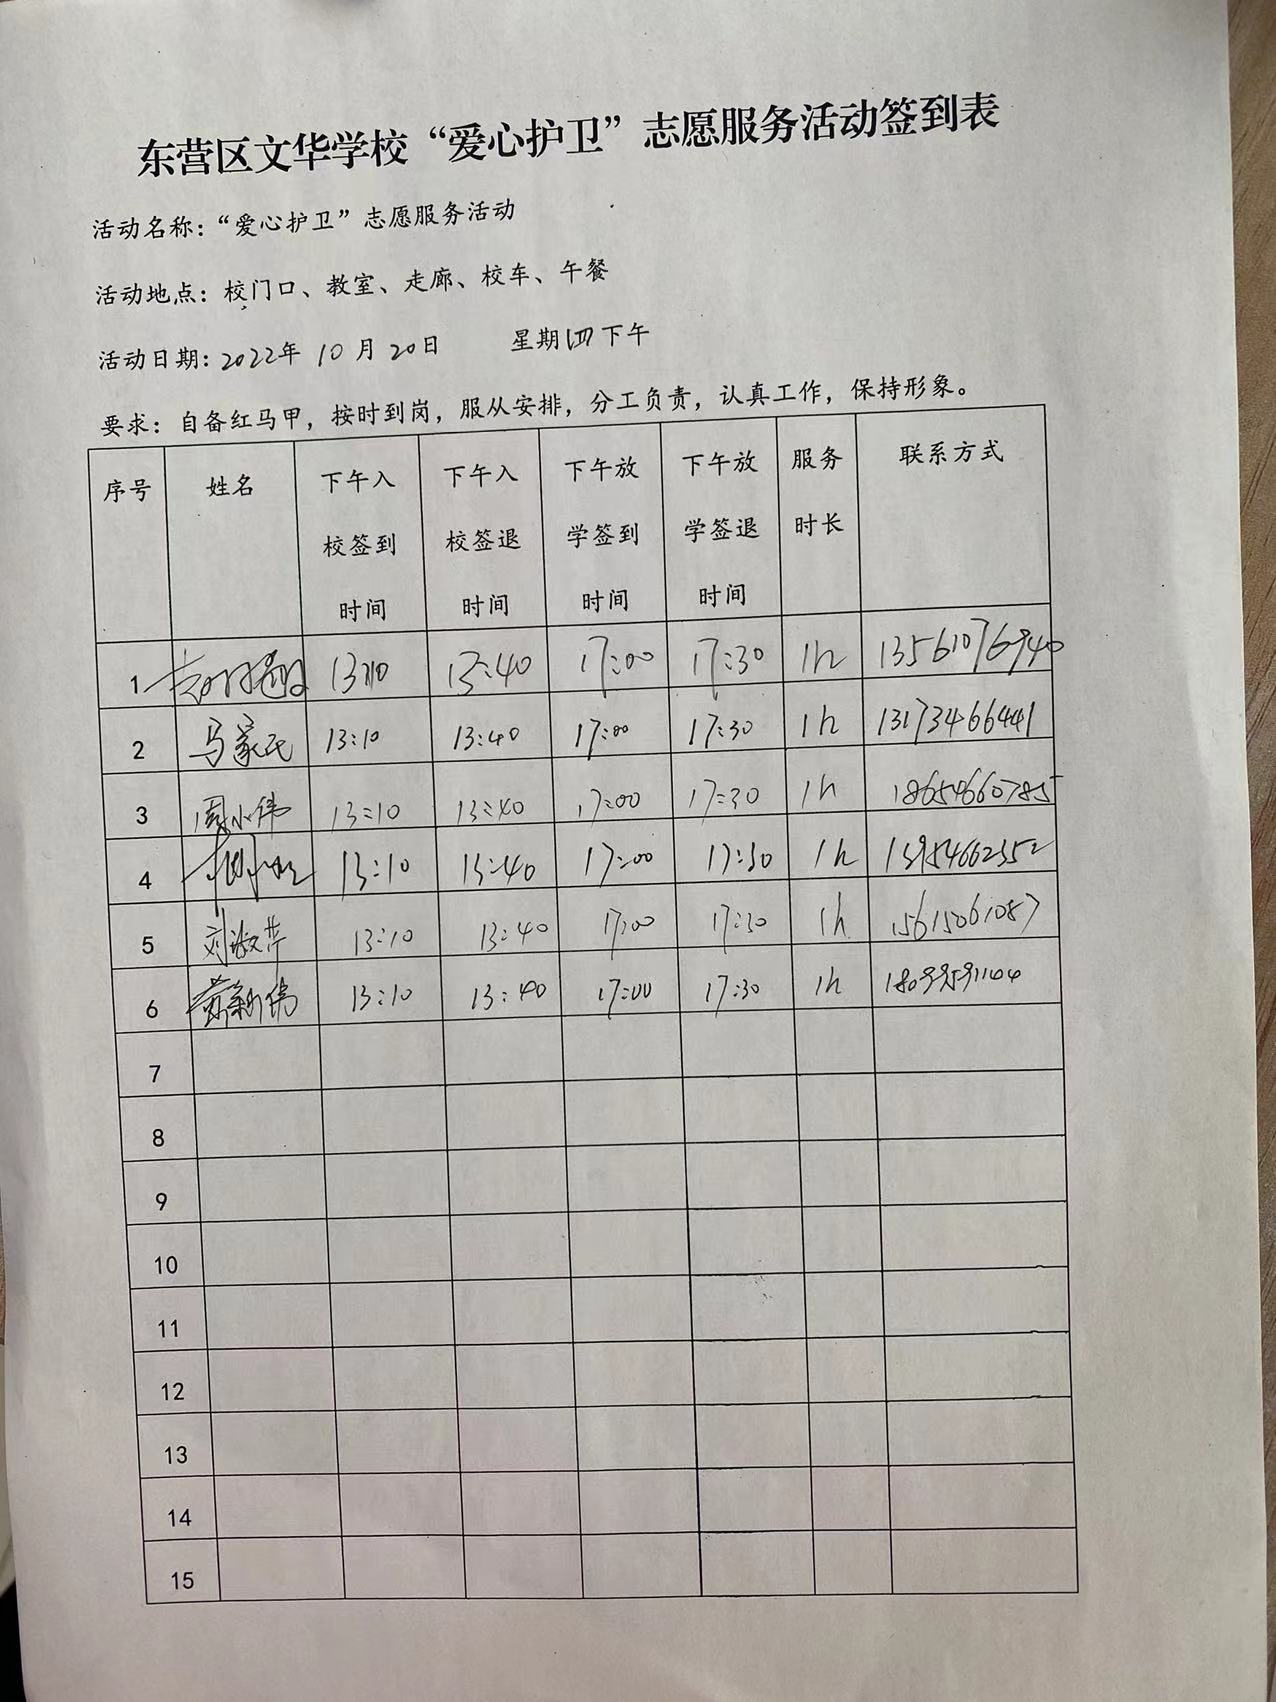 东营区文华学校“爱心护卫”志愿服务活动签到表
活动名称：“爱心护卫”志愿服务活动
活动地点：校门口、教室、走廊、校车、午餐
活动日期：2022年 10月 20日 星期四下午
要求：自备红马甲，按时到岗，服从安排，分工负责，认真工作，保持形象。
序号 姓名 下午入校签到时间 下午入校签退时间 下午放学签到时间 下午放学签退时间 服务时长 联系方式
1 13:10 13:40 17:00 17:30 1h 13561076940
2 马家民 13:10 13:40 17:00 17:30 1h 13173466441
3 周小伟 13:10 13:40 17:00 17:30 1h 18654660785
4 13:10 13:40 17:00 17:30 1h 13954662352
5 刘淑芹 13:10 13:40 17:00 17:30 1h 15615061087
6 新伟 13:10 13:40 17:00 17:30 1h
7
8
9
10
11
12
13
14
15